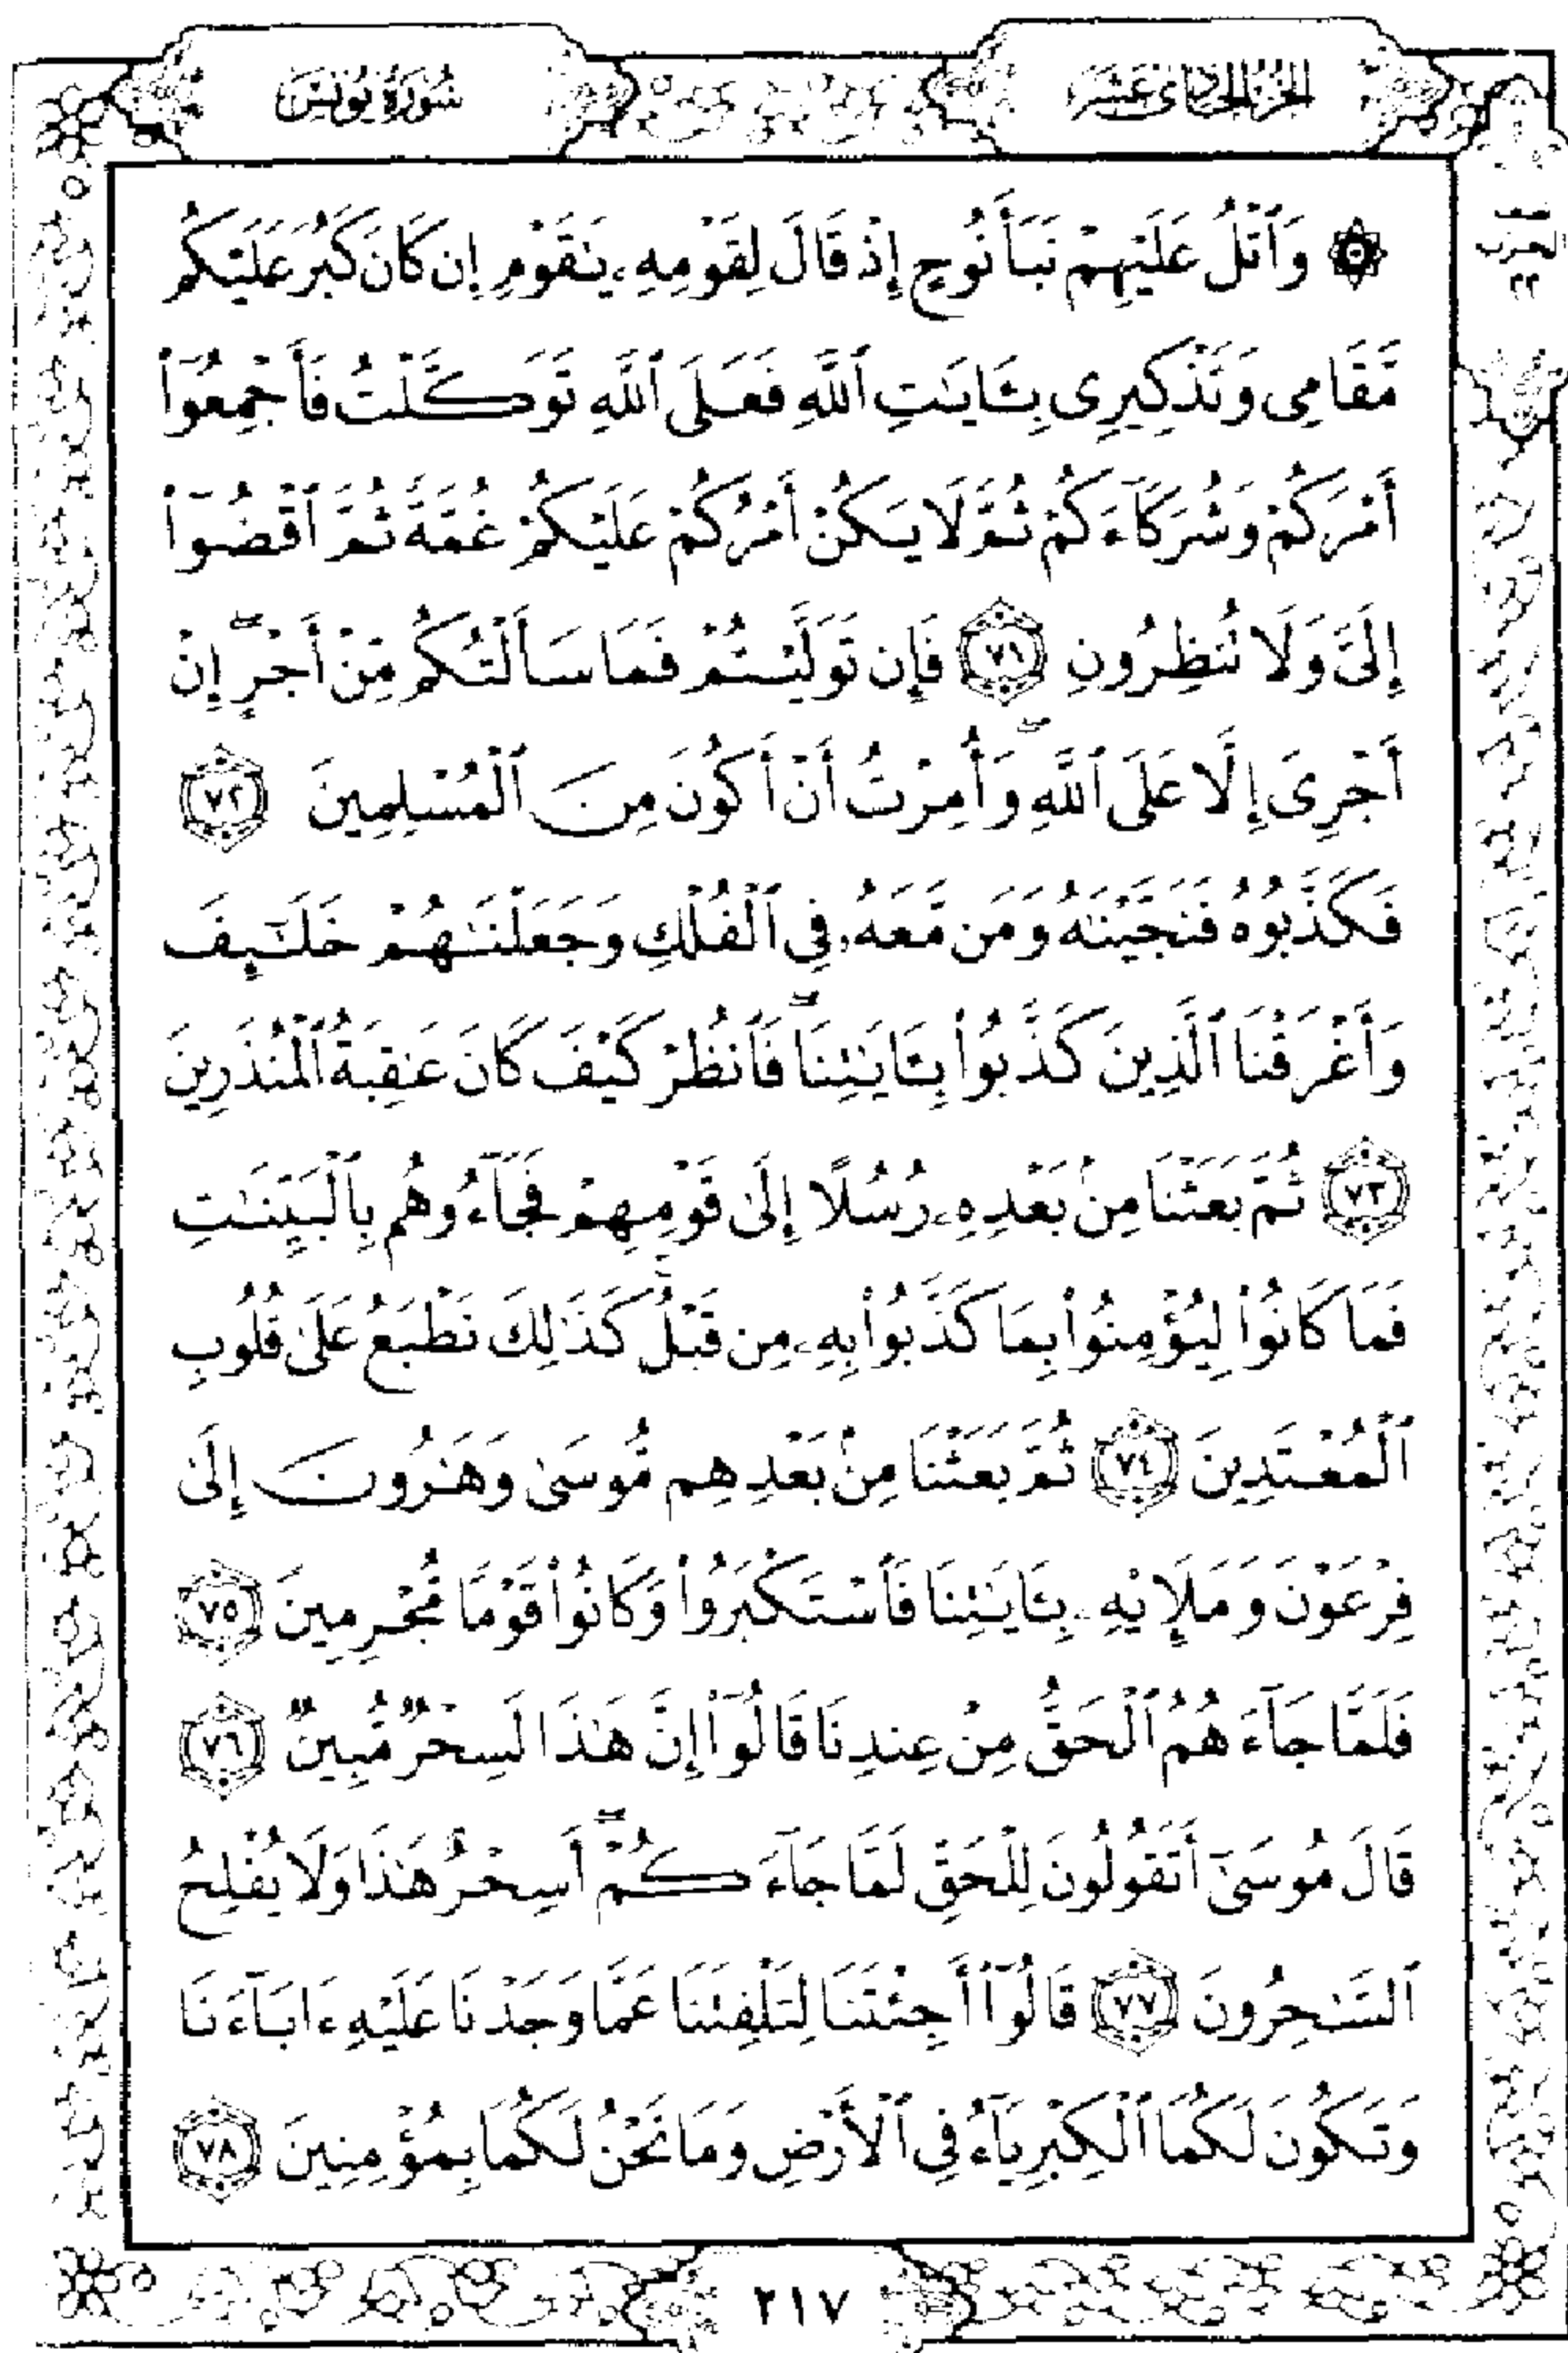 الجزء الحادي عشر
سورة يونس
الحزب
٢٢
۞ وَٱتْلُ عَلَيْهِمْ نَبَأَ نُوحٍ إِذْ قَالَ لِقَوْمِهِۦ يَٰقَوْمِ إِن كَانَ كَبُرَ عَلَيْكُم
مَّقَامِى وَتَذْكِيرِى بِـَٔايَٰتِ ٱللَّهِ فَعَلَى ٱللَّهِ تَوَكَّلْتُ فَأَجْمِعُوٓا۟
أَمْرَكُمْ وَشُرَكَآءَكُمْ ثُمَّ لَا يَكُنْ أَمْرُكُمْ عَلَيْكُمْ غُمَّةً ثُمَّ ٱقْضُوٓا۟
إِلَىَّ وَلَا تُنظِرُونِ ٧١ فَإِن تَوَلَّيْتُمْ فَمَا سَأَلْتُكُم مِّنْ أَجْرٍ ۖ إِنْ
أَجْرِىَ إِلَّا عَلَى ٱللَّهِ ۖ وَأُمِرْتُ أَنْ أَكُونَ مِنَ ٱلْمُسْلِمِينَ ٧٢
فَكَذَّبُوهُ فَنَجَّيْنَٰهُ وَمَن مَّعَهُۥ فِى ٱلْفُلْكِ وَجَعَلْنَٰهُمْ خَلَٰٓئِفَ
وَأَغْرَقْنَا ٱلَّذِينَ كَذَّبُوا۟ بِـَٔايَٰتِنَا ۖ فَٱنظُرْ كَيْفَ كَانَ عَٰقِبَةُ ٱلْمُنذَرِينَ
٧٣ ثُمَّ بَعَثْنَا مِنۢ بَعْدِهِۦ رُسُلًا إِلَىٰ قَوْمِهِمْ فَجَآءُوهُم بِٱلْبَيِّنَٰتِ
فَمَا كَانُوا۟ لِيُؤْمِنُوا۟ بِمَا كَذَّبُوا۟ بِهِۦ مِن قَبْلُ ۚ كَذَٰلِكَ نَطْبَعُ عَلَىٰ قُلُوبِ
ٱلْمُعْتَدِينَ ٧٤ ثُمَّ بَعَثْنَا مِنۢ بَعْدِهِم مُّوسَىٰ وَهَٰرُونَ إِلَىٰ
فِرْعَوْنَ وَمَلَإِي۟هِۦ بِـَٔايَٰتِنَا فَٱسْتَكْبَرُوا۟ وَكَانُوا۟ قَوْمًا مُّجْرِمِينَ ٧٥
فَلَمَّا جَآءَهُمُ ٱلْحَقُّ مِنْ عِندِنَا قَالُوٓا۟ إِنَّ هَٰذَا لَسِحْرٌ مُّبِينٌ ٧٦
قَالَ مُوسَىٰٓ أَتَقُولُونَ لِلْحَقِّ لَمَّا جَآءَكُمْ ۖ أَسِحْرٌ هَٰذَا وَلَا يُفْلِحُ
ٱلسَّٰحِرُونَ ٧٧ قَالُوٓا۟ أَجِئْتَنَا لِتَلْفِتَنَا عَمَّا وَجَدْنَا عَلَيْهِ ءَابَآءَنَا
وَتَكُونَ لَكُمَا ٱلْكِبْرِيَآءُ فِى ٱلْأَرْضِ وَمَا نَحْنُ لَكُمَا بِمُؤْمِنِينَ ٧٨
٢١٧